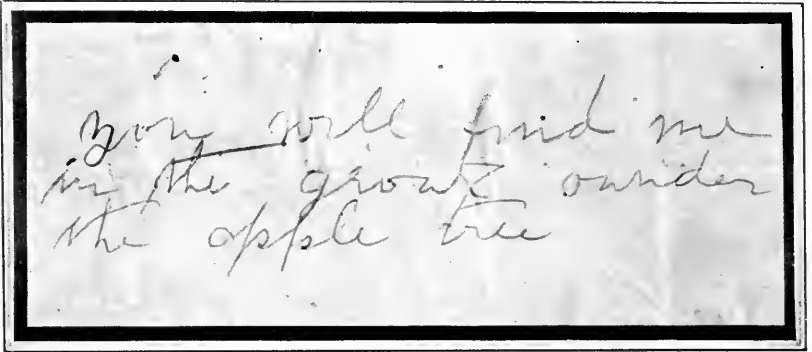 you will find me
in the growt ounder
the apple tree